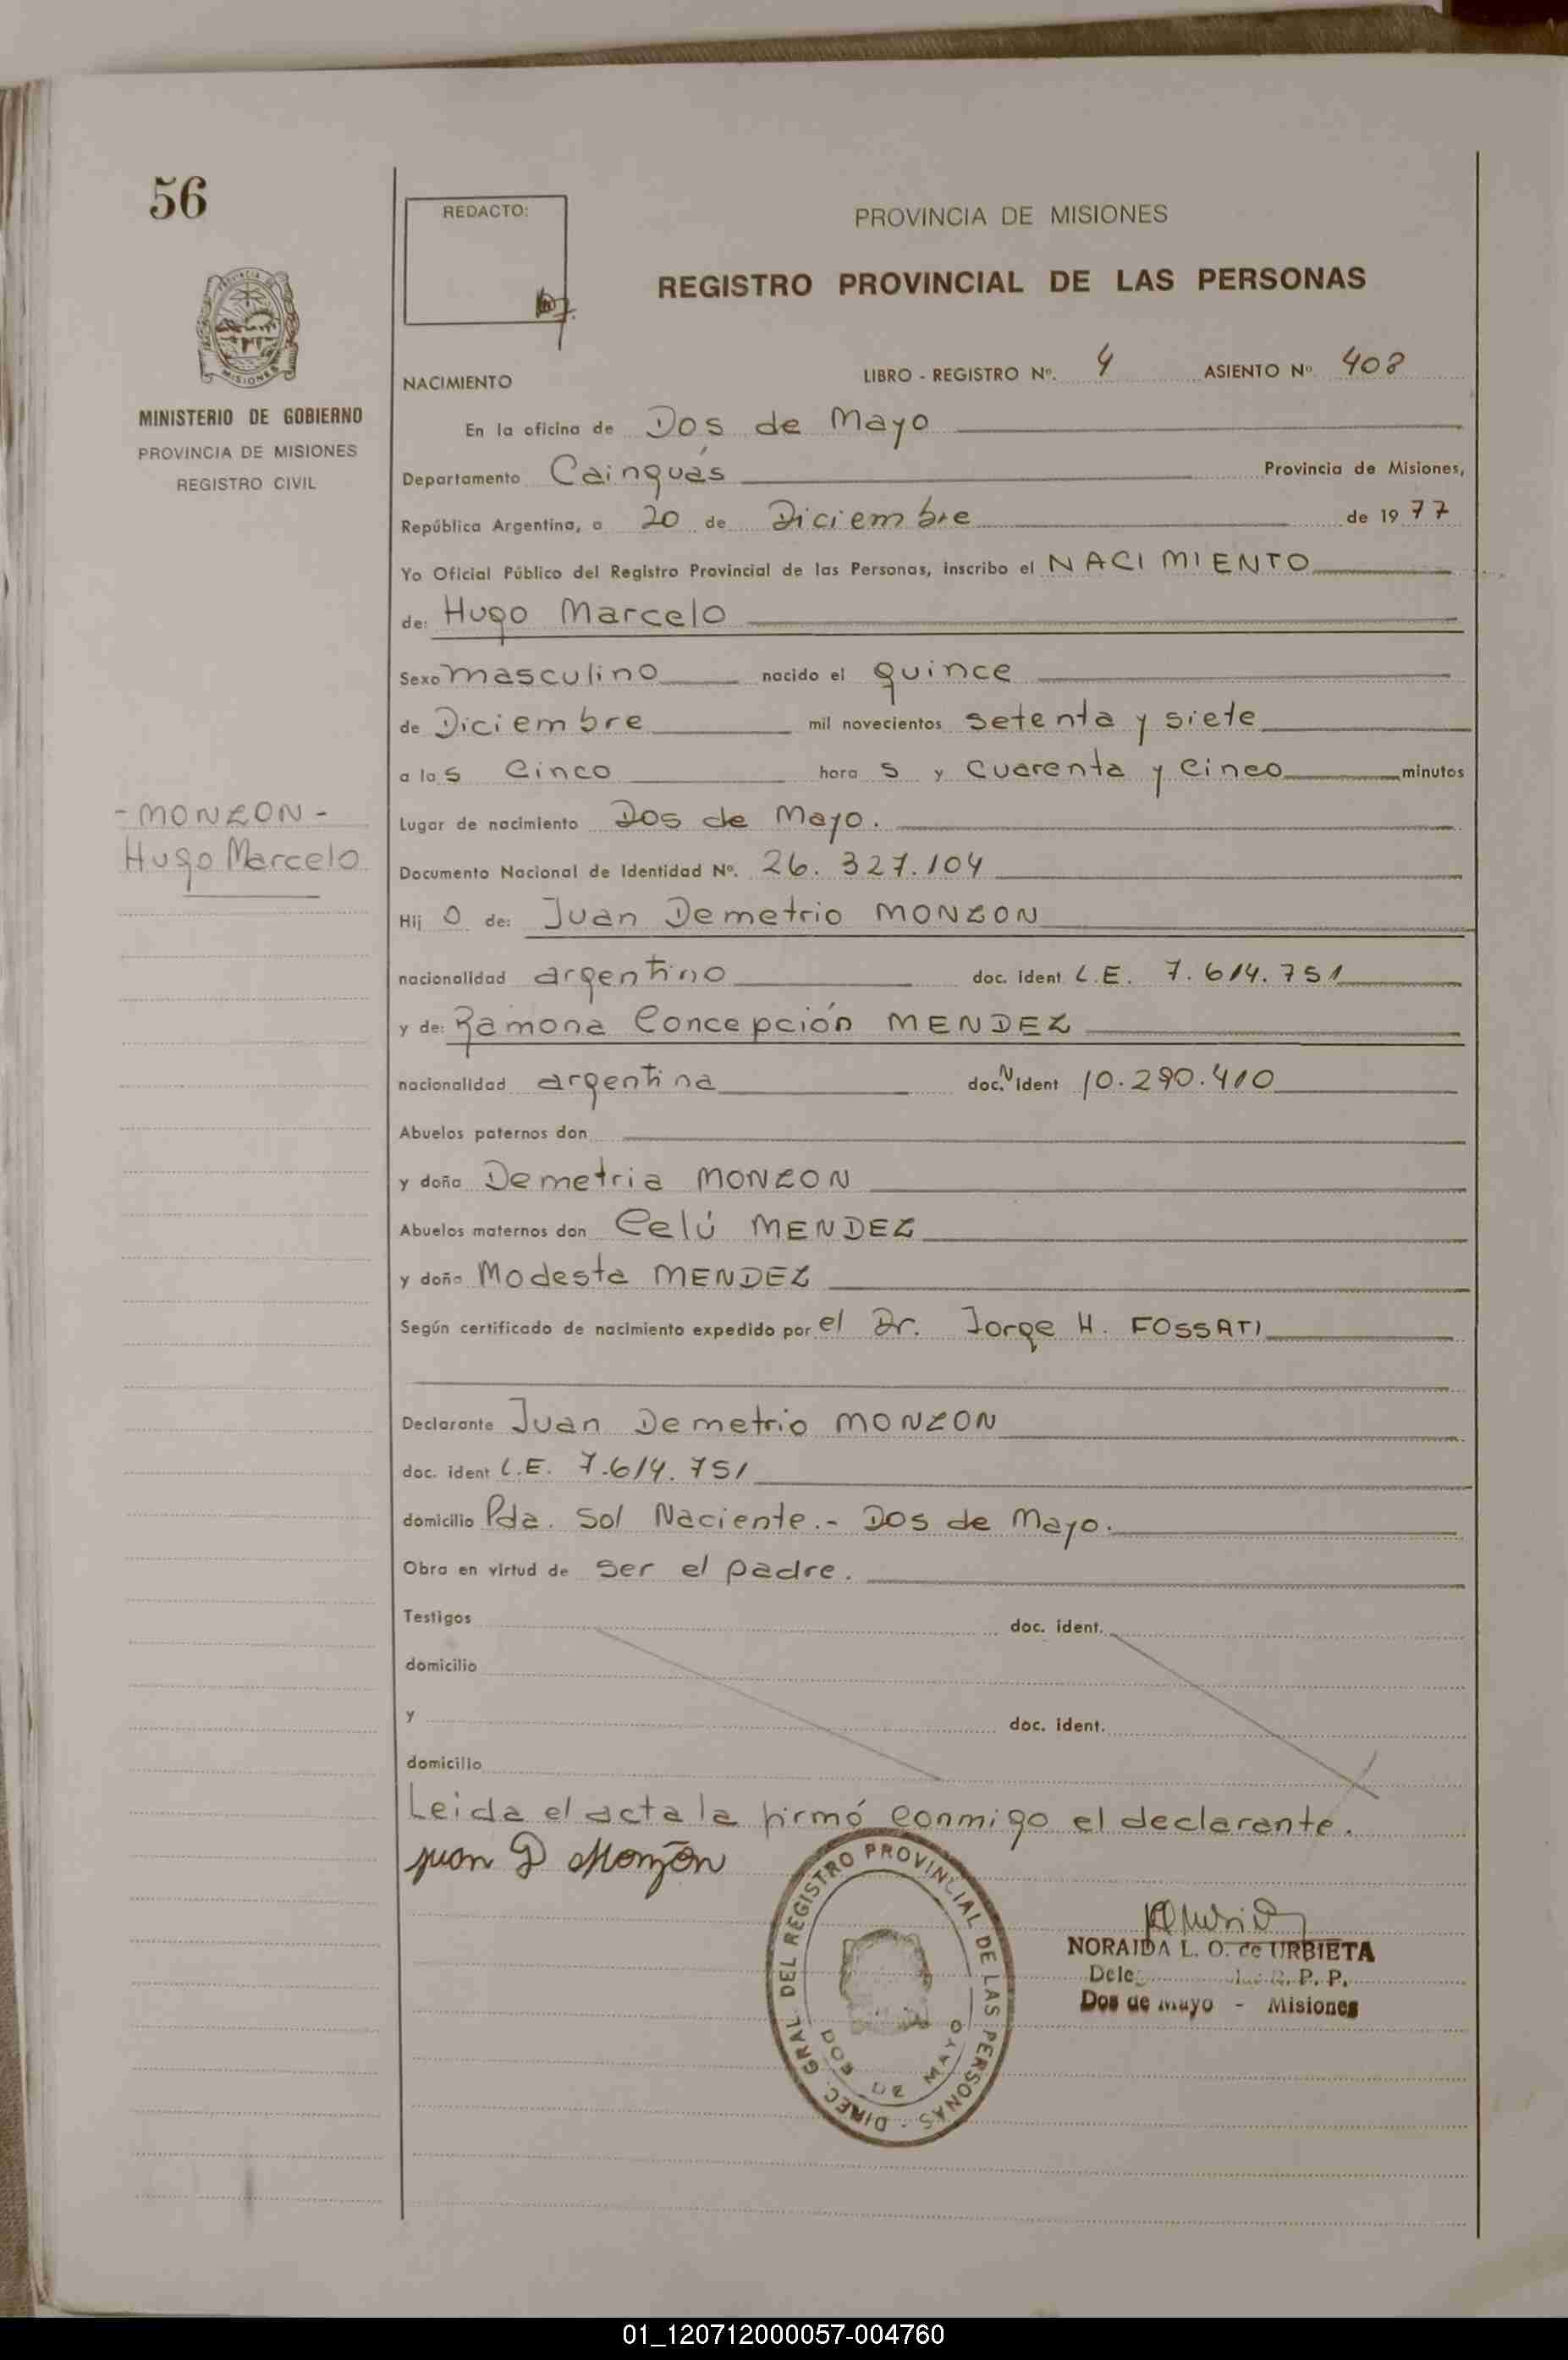 56
REDACTO:
PROVINCIA DE MISIONES
REGISTRO PROVINCIAL DE LAS PERSONAS
MISIONES
MINISTERIO DE GOBIERNO
PROVINCIA DE MISIONES
REGISTRO CIVIL
NACIMIENTO LIBRO - REGISTRO Nº. 4 ASIENTO Nº. 408
En la oficina de Dos de Mayo
Departamento Cainguás Provincia de Misiones,
República Argentina, a 20 de Diciembre de 1977
Yo Oficial Público del Registro Provincial de las Personas, inscribo el NACIMIENTO
de: Hugo Marcelo
Sexo masculino nacido el quince
de Diciembre mil novecientos setenta y siete
a las cinco horas y cuarenta y cinco minutos
- MONZON -
Hugo Marcelo
Lugar de nacimiento Dos de Mayo.
Documento Nacional de Identidad Nº. 26.327.104
Hijo de: Juan Demetrio MONZON
nacionalidad argentino doc. ident L.E. 7.614.751
y de: Ramona Concepción MENDEZ
nacionalidad argentina doc. N ident 10.290.410
Abuelos paternos don
y doña Demetria MONZON
Abuelos maternos don Celú MENDEZ
y doña Modesta MENDEZ
Según certificado de nacimiento expedido por el Dr. Jorge H. FOSSATI
Declarante Juan Demetrio MONZON
doc. ident L.E. 7.614.751
domicilio Pda. Sol Naciente.- Dos de Mayo.
Obra en virtud de ser el padre.
Testigos doc. ident.
domicilio
y doc. ident.
domicilio
Leida el acta la firmó conmigo el declarante.
Juan D Monzón
DIREC. GRAL. DEL REGISTRO PROVINCIAL DE LAS PERSONAS -
DOS DE MAYO
NORAIDA L. O. de URBIETA
R. P. P.
Dos de Mayo - Misiones
01_120712000057-004760